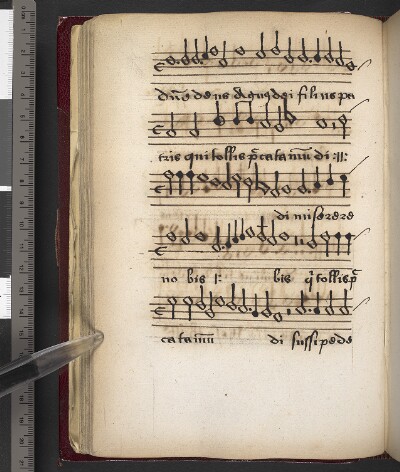 dn̄e deus Agnus dei filius pa
tris qui tollis p̄cata mū di :||:
di miserere
no bis |: bis q̄ tollis p̄
cata mū di sussipe de